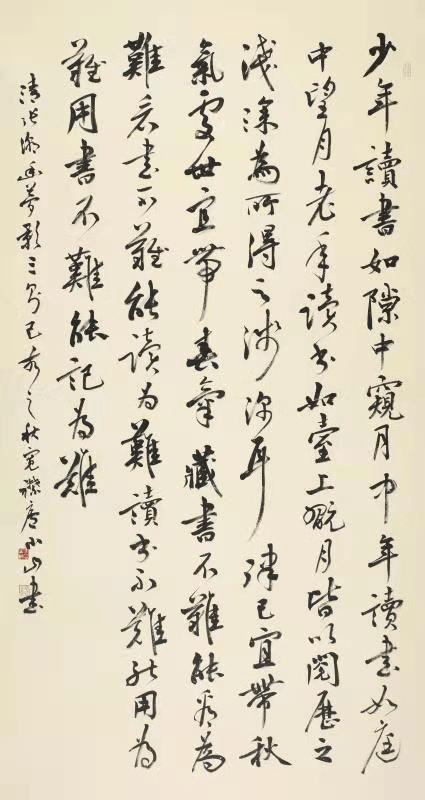 少年讀書如隙中窺月中年讀書如庭
中望月老年讀書如臺上翫月皆以閱歷之
淺深為所得之淺深耳律己宜帶秋
氣處世宜帶春氣藏書不難能看為
難看書不難能讀為難讀書不難能用為
難用書不難能記為難
清張潮幽夢影三則己亥之秋小山書